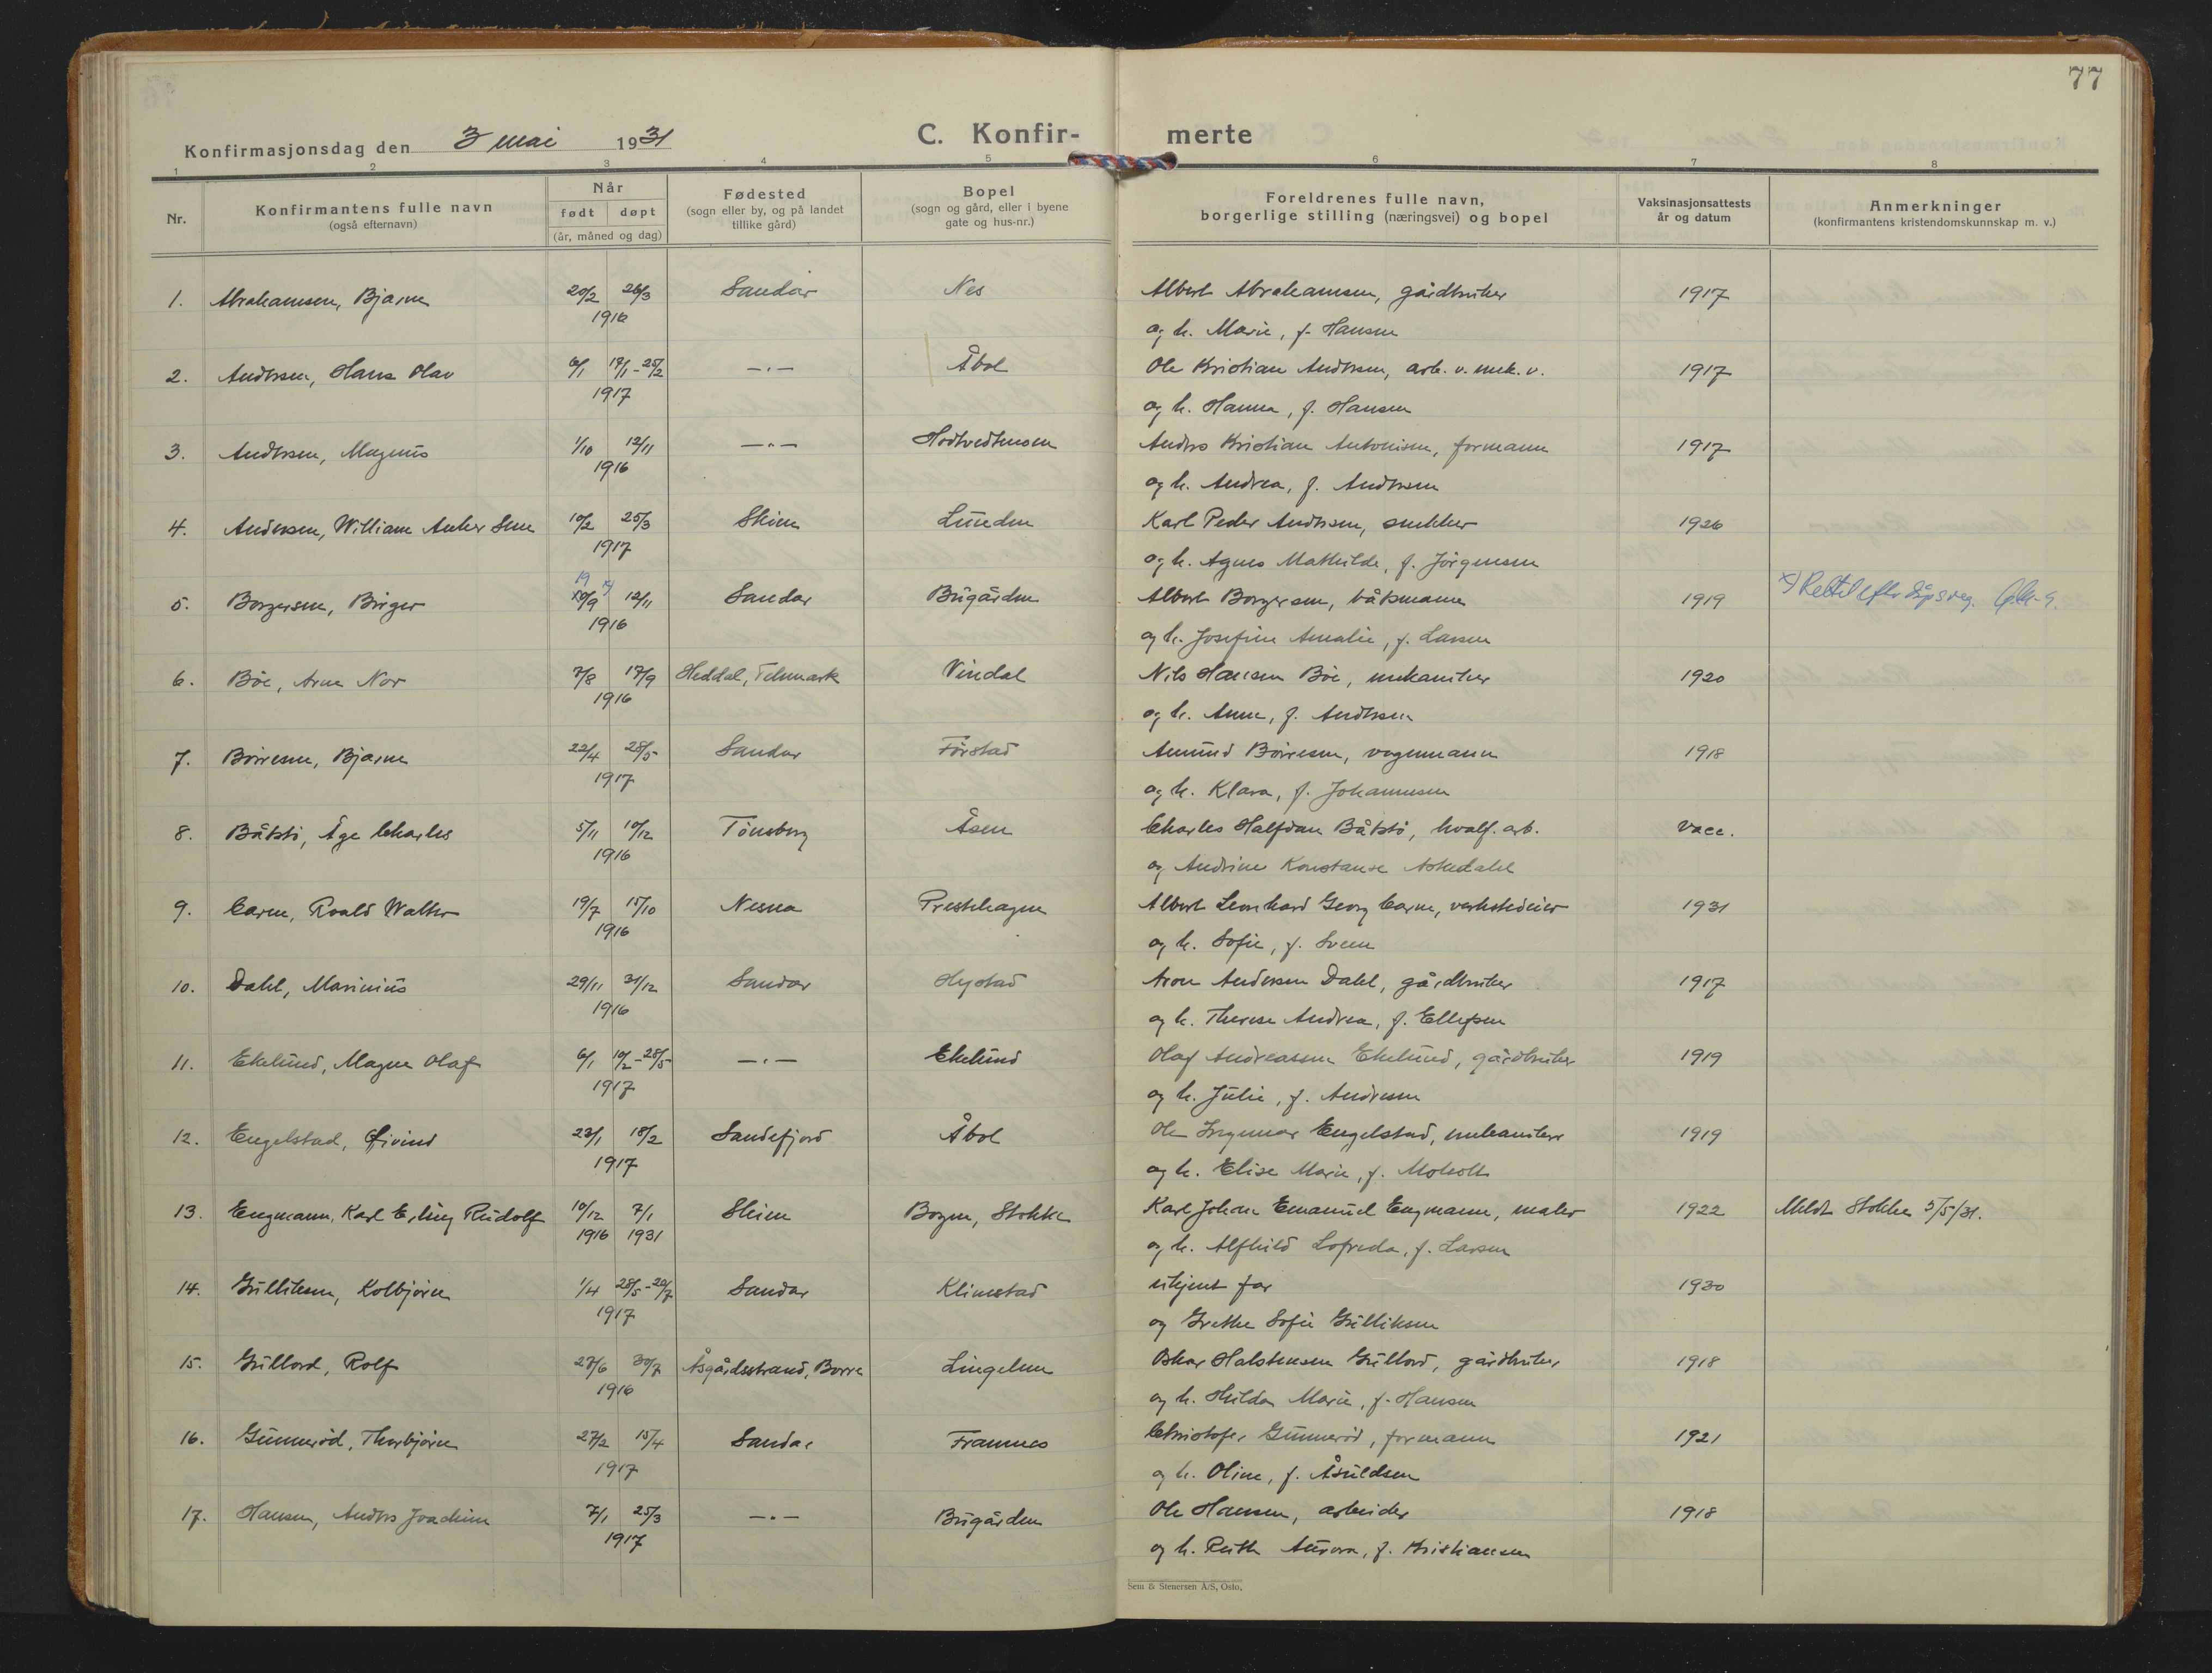 77
Konfirmasjonsdag den 3 mai 1931
C. Konfir- merte
1 2 3 4 5 6 7 8
Nr.
Konfirmantens fulle navn
(også efternavn)
Når
født døpt
(år, måned og dag)
Fødested
(sogn eller by, og på landet
tillike gård)
Bopel
(sogn og gård, eller i byene
gate og hus-nr.)
Foreldrenes fulle navn,
borgerlige stilling (næringsvei) og bopel
Vaksinasjonsattests
år og datum
Anmerkninger
(konfirmantens kristendomskunnskap m. v.)
1. Abrahamsen, Bjarne 20/2 26/3 Sandar Nes Albert Abrahamsen, gårdbruker 1917
1916 og h. Marie, f. Hansen
2. Andersen, Hans Olav 6/1 18/1-25/2 —"— Åbol Ole Kristian Andersen, arb. v. mek. v. 1917
1917 og h. Hanna, f. Hansen
3. Andersen, Magnus 1/10 12/11 —"— Hodtvedtmoen Anders Kristian Antonisen, formann 1917
1916 og h. Andrea, f. Andersen
4. Andersen, William Anker Sem 10/2 25/3 Skien Lunden Karl Peder Andersen, snekker 1926
1917 og h. Agnes Mathilde, f. Jörgensen
19 x)
5. Borgersen, Birger 20/9 12/11 Sandar Bugården Albert Borgersen, båtsmann 1919 x) Rettet efter dåpsreg.
1916 og h. Josefine Amalie, f. Larsen
6. Böe, Arne Nor 7/8 17/9 Heddal, Telemark Vindal Nils Hansen Böe, mekaniker 1920
1916 og h. Anne, f. Andersen
7. Börresen, Bjarne 22/4 28/5 Sandar Förstad Amund Börresen, vognmann 1918
1917 og h. Klara, f. Johannesen
8. Båtstö, Åge Charles 5/11 10/12 Tönsberg Åsen Charles Halfdan Båtstö, hvalf. arb. vacc.
1916 og Andrine Konstanse Askedahl
9. Carm, Roald Walter 19/7 15/10 Nesna Presthagen Albert Leonhard Georg Carm, verkstedeier 1931
1916 og h. Sofie, f. Sveen
10. Dahl, Marinius 29/11 31/12 Sandar Hystad Aron Andersen Dahl, gårdbruker 1917
1916 og h. Therese Andrea, f. Ellefsen
11. Ekelund, Magne Olaf 6/1 10/2-28/5 —"— Ekelund Olaf Andreassen Ekelund, gårdbruker 1919
1917 og h. Julie, f. Andresen
12. Engelstad, Öivind 23/1 18/2 Sandefjord Åbol Ole Ingvar Engelstad, mekaniker 1919
1917 og h. Elise Marie, f. Moholt
13. Engmann, Karl Erling Rudolf 10/12 7/1 Skien Borgen, Stokke Karl Johan Emanuel Engmann, maler 1922 Meldt Stokke 5/5/31.
1916 1931 og h. Alfhild Lofreda, f. Larsen
14. Gulliksen, Kolbjörn 1/4 28/5-20/7 Sandar Klinestad ukjent far 1930
1917 og Grethe Sofie Gulliksen
15. Gullord, Rolf 27/6 30/7 Åsgårdsstrand, Borre Lingelem Oskar Halstensen Gullord, gårdbruker 1918
1916 og h. Hilda Marie, f. Hansen
16. Gunneröd, Thorbjörn 27/2 15/4 Sandar Framnes Christofer Gunneröd, formann 1921
1917 og h. Oline, f. Åsuldsen
17. Hansen, Anders Joachim 7/1 25/3 —"— Bugården Ole Hansen, arbeider 1918
1917 og h. Ruth Aurora, f. Kristiansen
Sem & Stenersen A/S, Oslo.